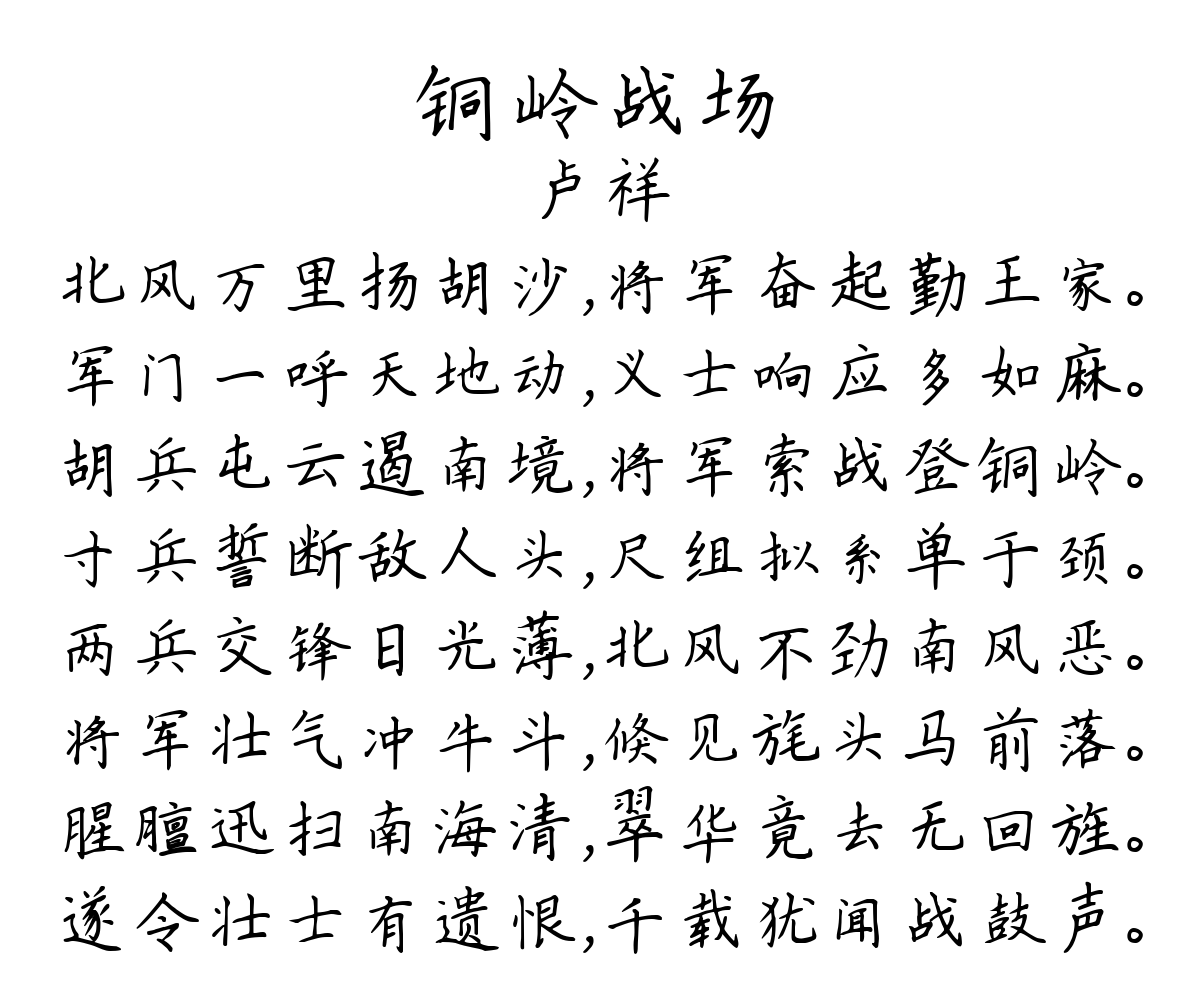 铜岭战场
卢祥
北风万里扬胡沙,将军奋起勤王家。
军门一呼天地动,义士响应多如麻。
胡兵屯云遏南境,将军索战登铜岭。
寸兵誓断敌人头,尺组拟系单于颈。
两兵交锋日光薄,北风不劲南风恶。
将军壮气冲牛斗,倏见旄头马前落。
腥膻迅扫南海清,翠华竟去无回旌。
遂令壮士有遗恨,千载犹闻战鼓声。